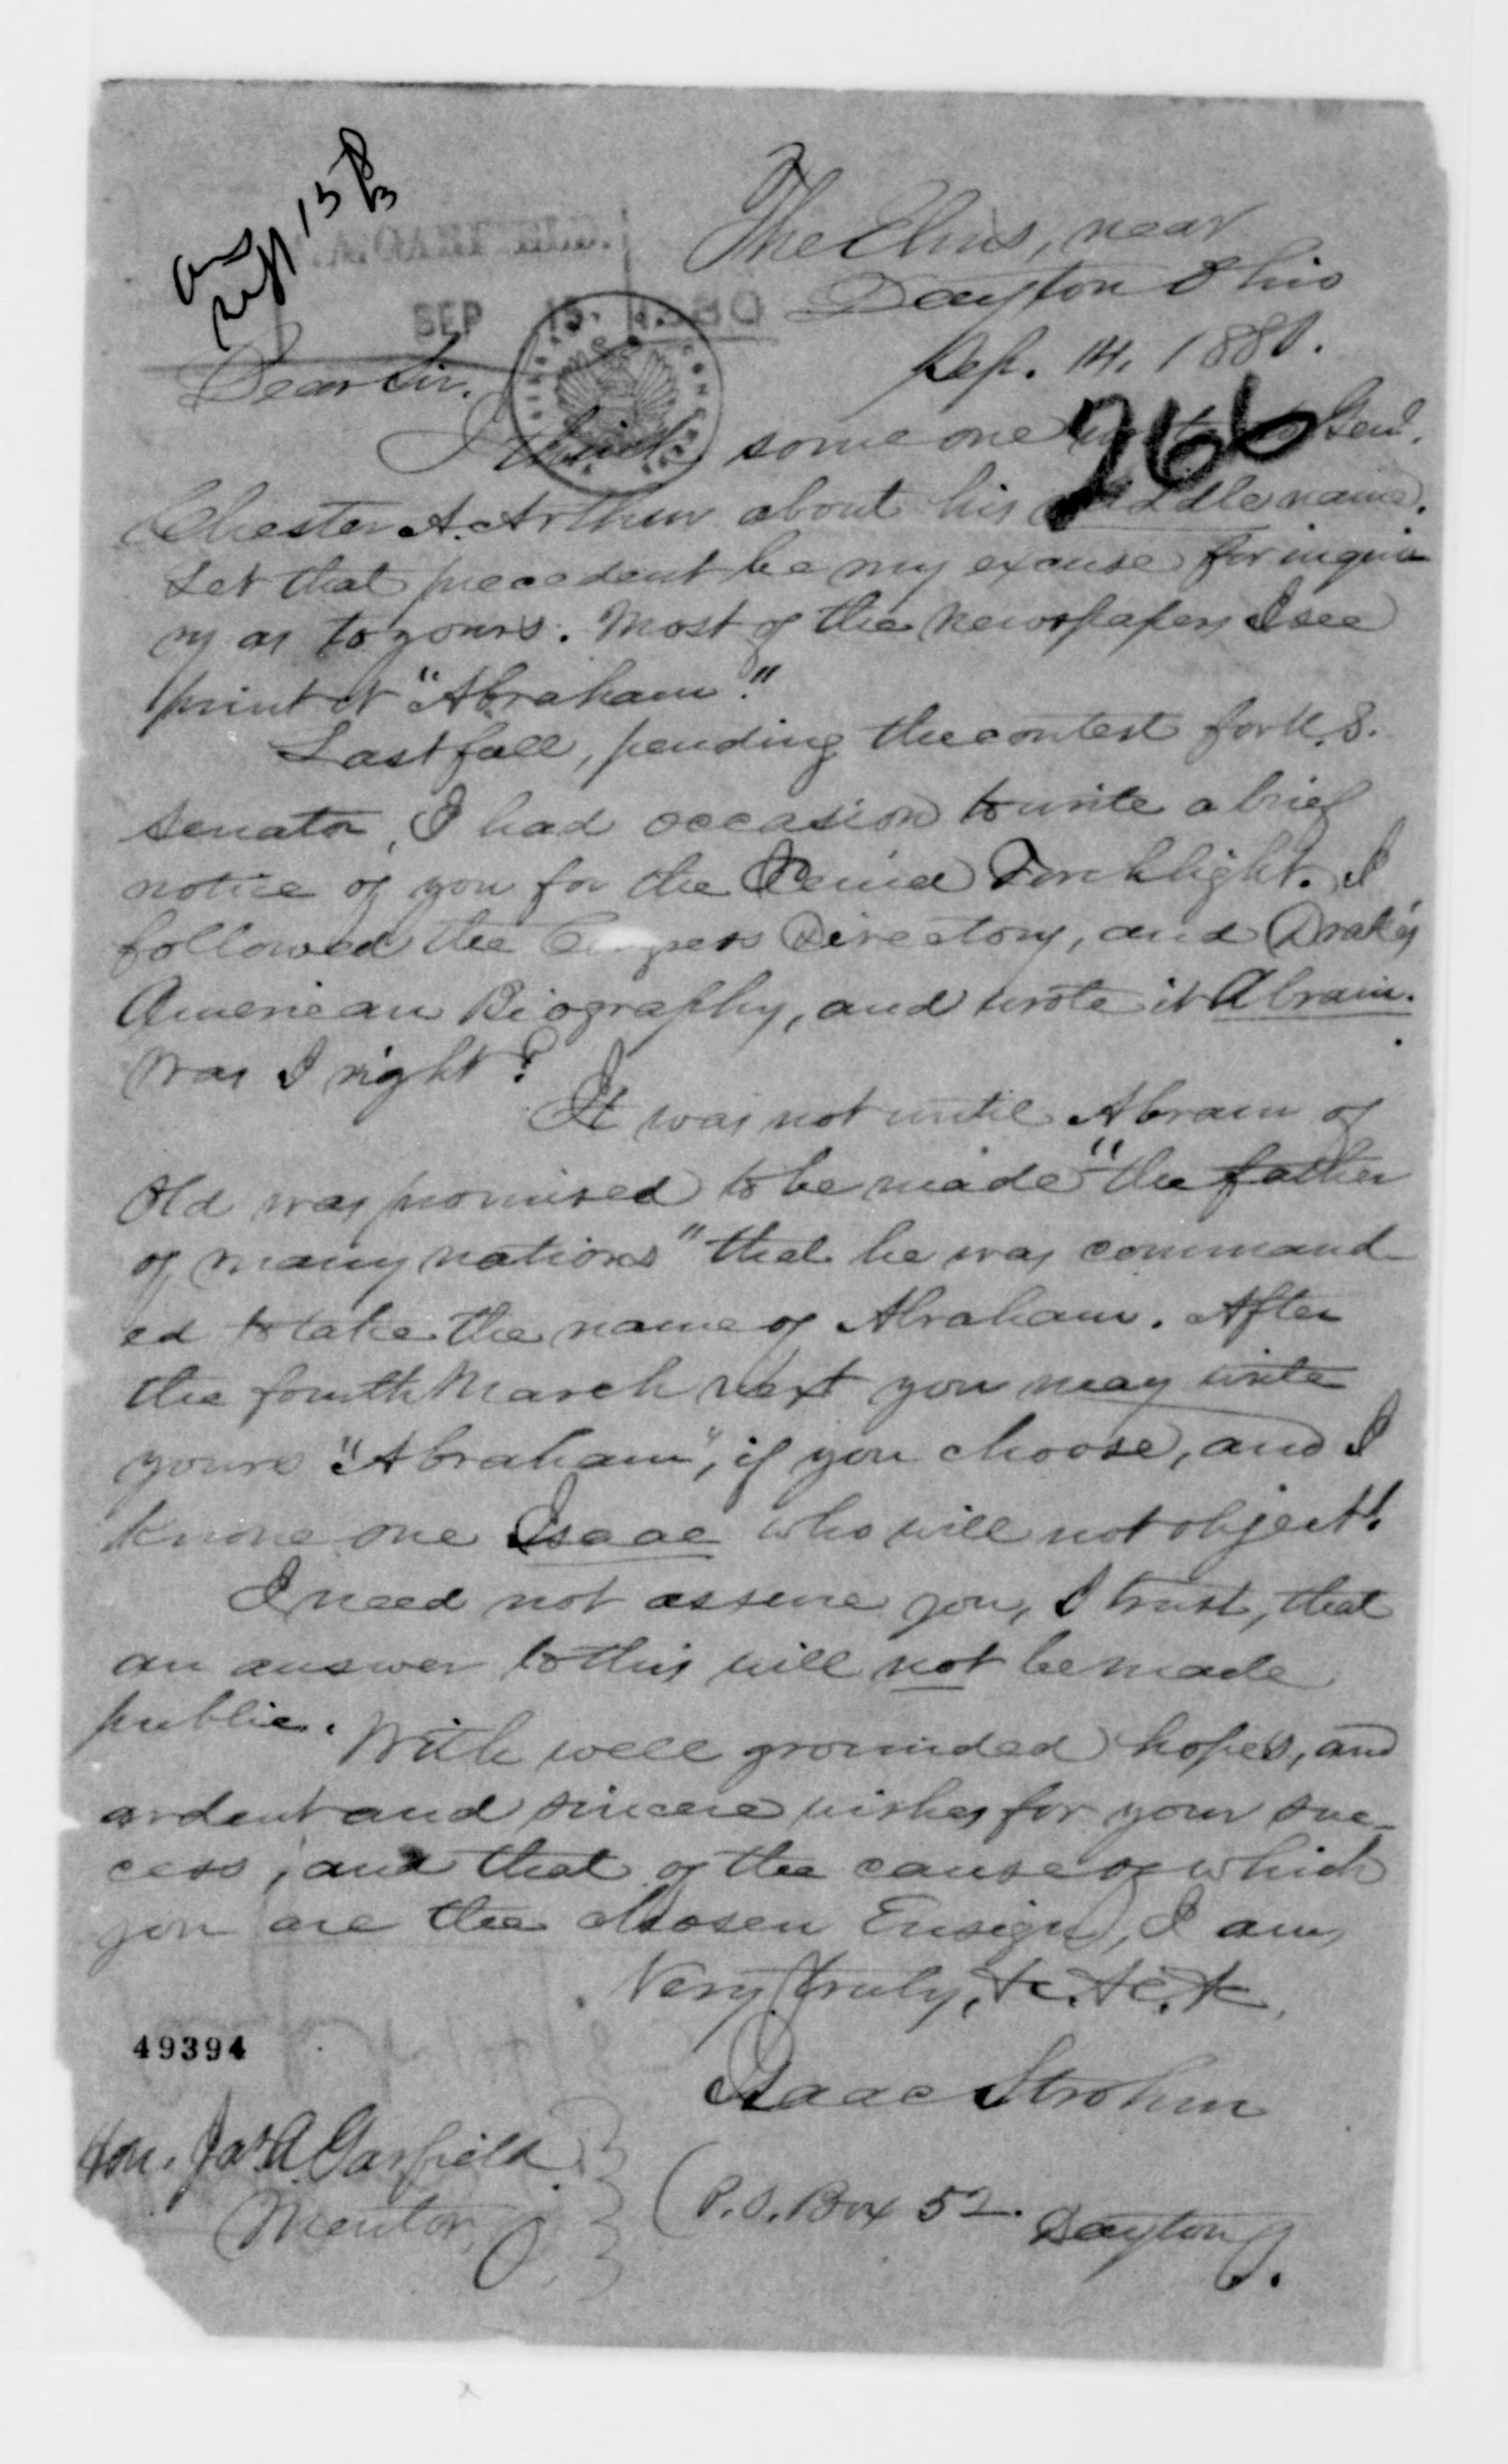 Ans
Sept 15
. A. GARFIELD.
SEP 15. 1880
The Elms, near
Dayton Ohio
Sep. 14. 1880.
Dear Sir.
266
I think some one wrote to Genl.
Chester A. Arthur about his middle name.
Let that precedent be my excuse for inquir
ry as to yours. Most of the newspapers I see
print it "Abraham."
Last fall, pending the contest for U.S.
Senator, I had occasion to write a brief
notice of you for the Xenia Torchlight. I
followed the Congress Directory, and Drake's
American Biography, and wrote it Abram.
Was I right?
It was not until Abram of
Old was promised to be made "the father
of many nations" that he was command
ed to take the name of Abraham. After
the fourth March next you may write
yours "Abraham", if you choose, and I
know one Isaac who will not object!
I need not assure you, I trust, that
an answer to this will not be made
public.
With well grounded hopes, and
ardent and sincere wishes for your suc-
cess, and that of the cause of which
you are the chosen Ensign, I am,
Very truly, &c. &c. &c.
Isaac Strohm
49394
Hon. Jas A Garfield
Mentor, O.
(P.O. Box 52. Dayton O.